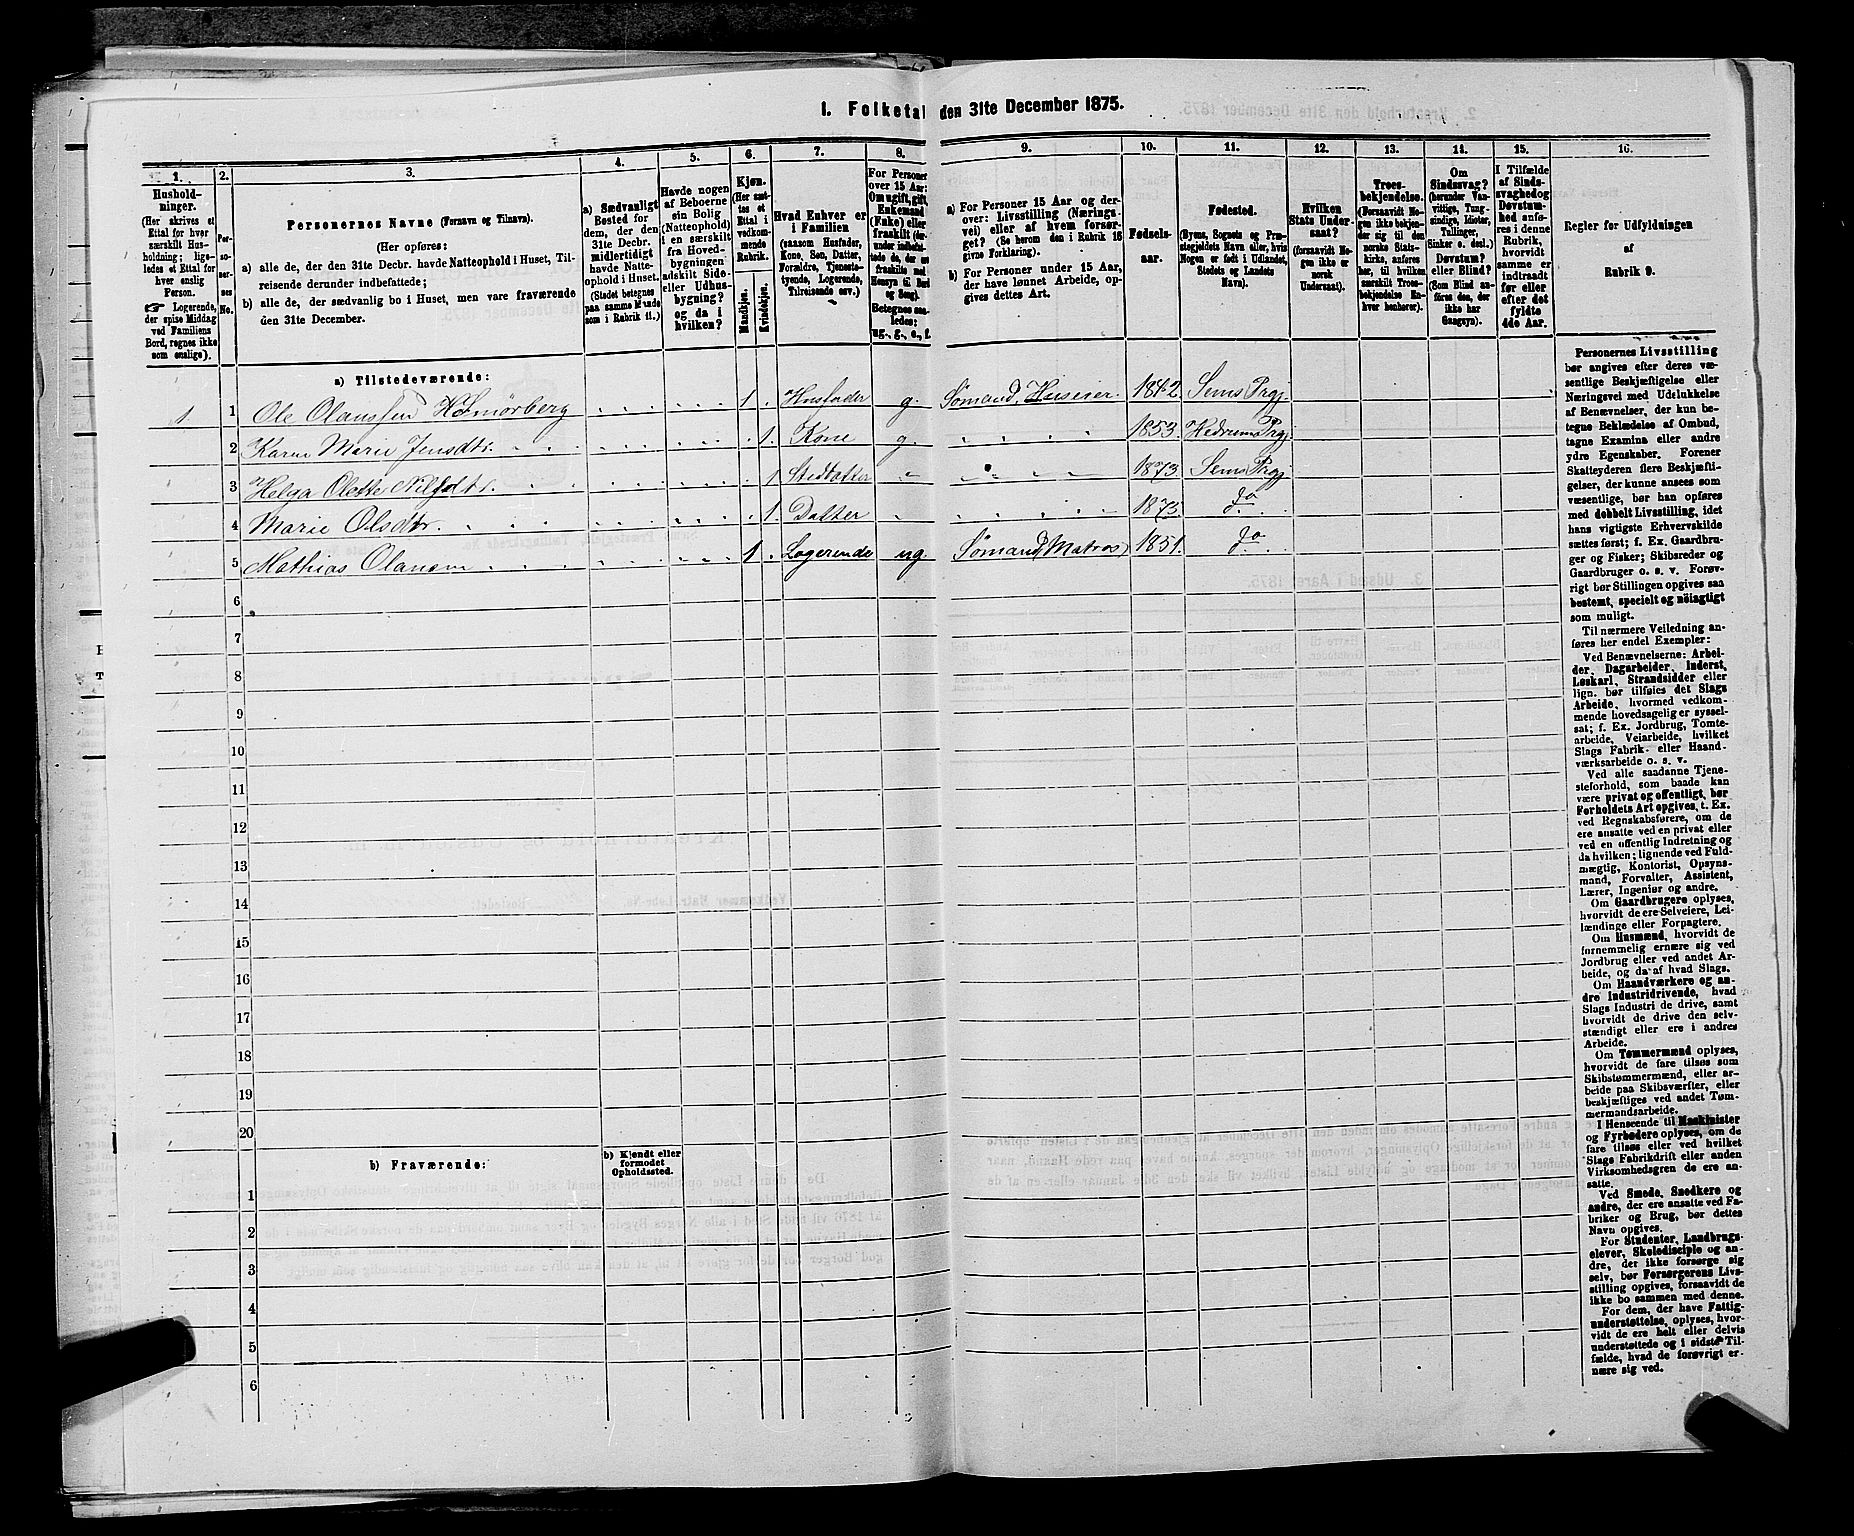 1. Folketal den 31te December 1875.
1.
2.
3.
4.
5.
6.
7.
8.
9.
10.
11.
12.
13.
14.
15.
16.
Hushold-
ninger.
(Her skrives et
Ettal for hver
særskilt Hus-
holdning; lige-
ledes et Ettal for
hver enslig
Person.
☞ Logerende,
der spise Middag
ved Familiens
Bord, regnes ikke
som enslige).
Per-
so-
ner-
nes
No.
Personernes Navne (Fornavn og Tilnavn).
(Her opføres:
a) alle de, der den 31te Decbr. havde Natteophold i Huset, Til-
reisende derunder indbefattede;
b) alle de, der sædvanlig bo i Huset, men vare fraværende
den 31te December.
a) Sædvanligt
Bosted for
dem, der den
31te Decbr.
midlertidigt
havde Natte-
ophold i Huset.
(Stedet betegnes
paa samme Maade
som i Rubrik 11.)
Havde nogen
af Beboerne
sin Bolig
(Natteophold)
i en særskilt
fra Hoved-
bygningen
adskilt Side-
eller Udhus-
bygning?
og da i
hvilken?
Kjøn.
(Her sæt-
tes et
Ettal i
vedkom-
mende
Rubrik.
Mandkjøn.
Kvindekjøn.
Hvad Enhver er
i Familien
(saasom Husfader,
Kone, Søn, Datter,
Forældre, Tjeneste-
tyende, Logerende,
Tilreisende osv.)
For Personer
over 15 Aar:
Om ugift, gift,
Enkemand
(Enke) eller
fraskilt (der-
under indbefat-
tede de, der ere
fraskilte med
Hensyn til Bord
og Seng).
Betegnes saa-
ledes:
ug., g., e., f.
a) For Personer 15 Aar og der-
over: Livsstilling (Nærings-
vei) eller af hvem forsør-
get? (Se herom den i Rubrik 16
givne Forklaring).
b) For Personer under 15 Aar,
der have lønnet Arbeide, op-
gives dettes Art.
Fødsels-
aar.
Fødested.
(Byens, Sognets og Præ-
stegjeldets Navn eller, hvis
Nogen er født i Udlandet,
Stedets og Landets
Navn).
Hvilken
Stats Under-
saat?
(forsaavidt No-
gen ikke er
norsk
Undersaat).
Troes-
bekjendelse.
(Forsaavidt No-
gen ikke bekjen-
der sig til den
norske Stats-
kirke, anføres
her, til hvilken
særskilt Troes-
bekjendelse En-
hver henhører).
Om
Sindssvag?
(herunder Van-
vittige, Tung-
sindige, Idioter,
Tullinger,
Sinker o. desl.)
Døvstum?
eller Blind?
(Som Blind an-
føres den, der
ikke har
Gangsyn).
I Tilfælde
af Sinds-
svaghed og
Døvstum-
hed anfø-
res i denne
Rubrik,
hvorvidt
samme er
indtraadt
før eller
efter det
fyldte
4de Aar.
Regler for Udfyldningen
af
Rubrik 9.
a) Tilstedeværende:
1 1 Ole Olanssen 1 Husfader g. Sømand, Huseier. 1842. Sems Prgj
2 Karen Marie Jensdtr. 1. Kone g. 1853. Hedrums Prgj
3 Helga Olette Nilsdtr. 1 Stedatter 1873 Sems Prgj
4 Marie Olsdtr. 1. Datter 1873. do
5 Mathias Olansen 1 Logerende ug. Sømand (Matros) 1851. do
6
7
8
9
10
11
12
13
14
15
16
17
18
19
20
b) Fraværende:
b) Kjendt eller
formodet
Opholdssted.
1
2
3
4
5
6
Personernes Livsstilling
bør angives efter deres væ-
sentlige Beskjæftigelse eller
Næringsvei med Udelukkelse
af Benævnelser, der kun be-
tegne Bekledelse af Ombud,
tagne Examina eller andre
ydre Egenskaber. Forener
Skatteyderen flere Beskjæfti-
gelser, der kunne ansees som
væsentlige, bør han opføres
med dobbelt Livsstilling, idet
hans vigtigste Erhvervskilde
sættes først; f. Ex. Gaardbru-
ger og Fisker; Skibsreder og
Gaardbruger o. s. v. Forøv-
rigt bør Stillingen opgives saa
bestemt, specielt og nøiagtigt
som muligt.
Til nærmere Veiledning an-
føres her endel Exempler:
Ved Benævnelserne: Arbei-
der, Dagarbeider, Inderst,
Løskarl, Strandsidder eller
lign. bør tilføies det Slags
Arbeide, hvormed vedkom-
mende hovedsagelig er syssel-
sat; f. Ex. Jordbrug, Tomte-
arbeide, Veiarbeide, hvilket
Slags Fabrik- eller Haand-
værksarbeide o. s. v.
Ved alle saadanne Tjene-
steforhold, som baade kan
være privat og offentligt, bør
Forholdets Art opgives, t. Ex.
ved Regnskabsførere, om de
ere ansatte ved en privat eller
ved en offentlig Indretning og
da hvilken; lignende ved Fuld-
mægtig, Kontorist, Opsyns-
mand, Forvalter, Assistent,
Lærer, Ingeniør og andre.
Om Gaardbrugere oplyses,
hvorvidt de ere Selveiere, Lei-
lændinge eller Forpagtere.
Om Husmænd, hvorvidt de
fornemmelig ernære sig ved
Jordbrug eller ved andet Ar-
beide, og da af hvad Slags.
Om Haandværkere og an-
dre Industridrivende, hvad
Slags Industri de drive, samt
hvorvidt de drive den selv-
stændigt eller ere i andres
Arbeide.
Om Tømmermænd oplyses,
hvorvidt de fare tilsøs som
Skibstømmermænd, eller ar-
beide paa Skibsværfter, eller
beskjæftiges ved andet Tøm-
mermandsarbeide.
I Henseende til Maskinister
og Fyrbødere oplyses, om de
fare tilsøs eller ved hvilket
Slags Fabrikdrift eller anden
Virksomhedsgren de ere an-
satte.
Ved Smede, Snedkere og
andre, der ere ansatte ved Fa-
briker og Brug, bør dettes
Navn opgives.
For Studenter, Landbrugs-
elever, Skoledisciple og an-
dre, der ikke forsørge sig
selv, bør Forsørgerens Livs-
stilling opgives, forsaavidt de
ikke bo sammen med denne.
For dem, der have Fattig-
understøttelse, oplyses, hvor-
vidt de ere helt eller delvis
understøttede og i sidste Til-
fælde, hvad de forøvrigt er-
nære sig ved.